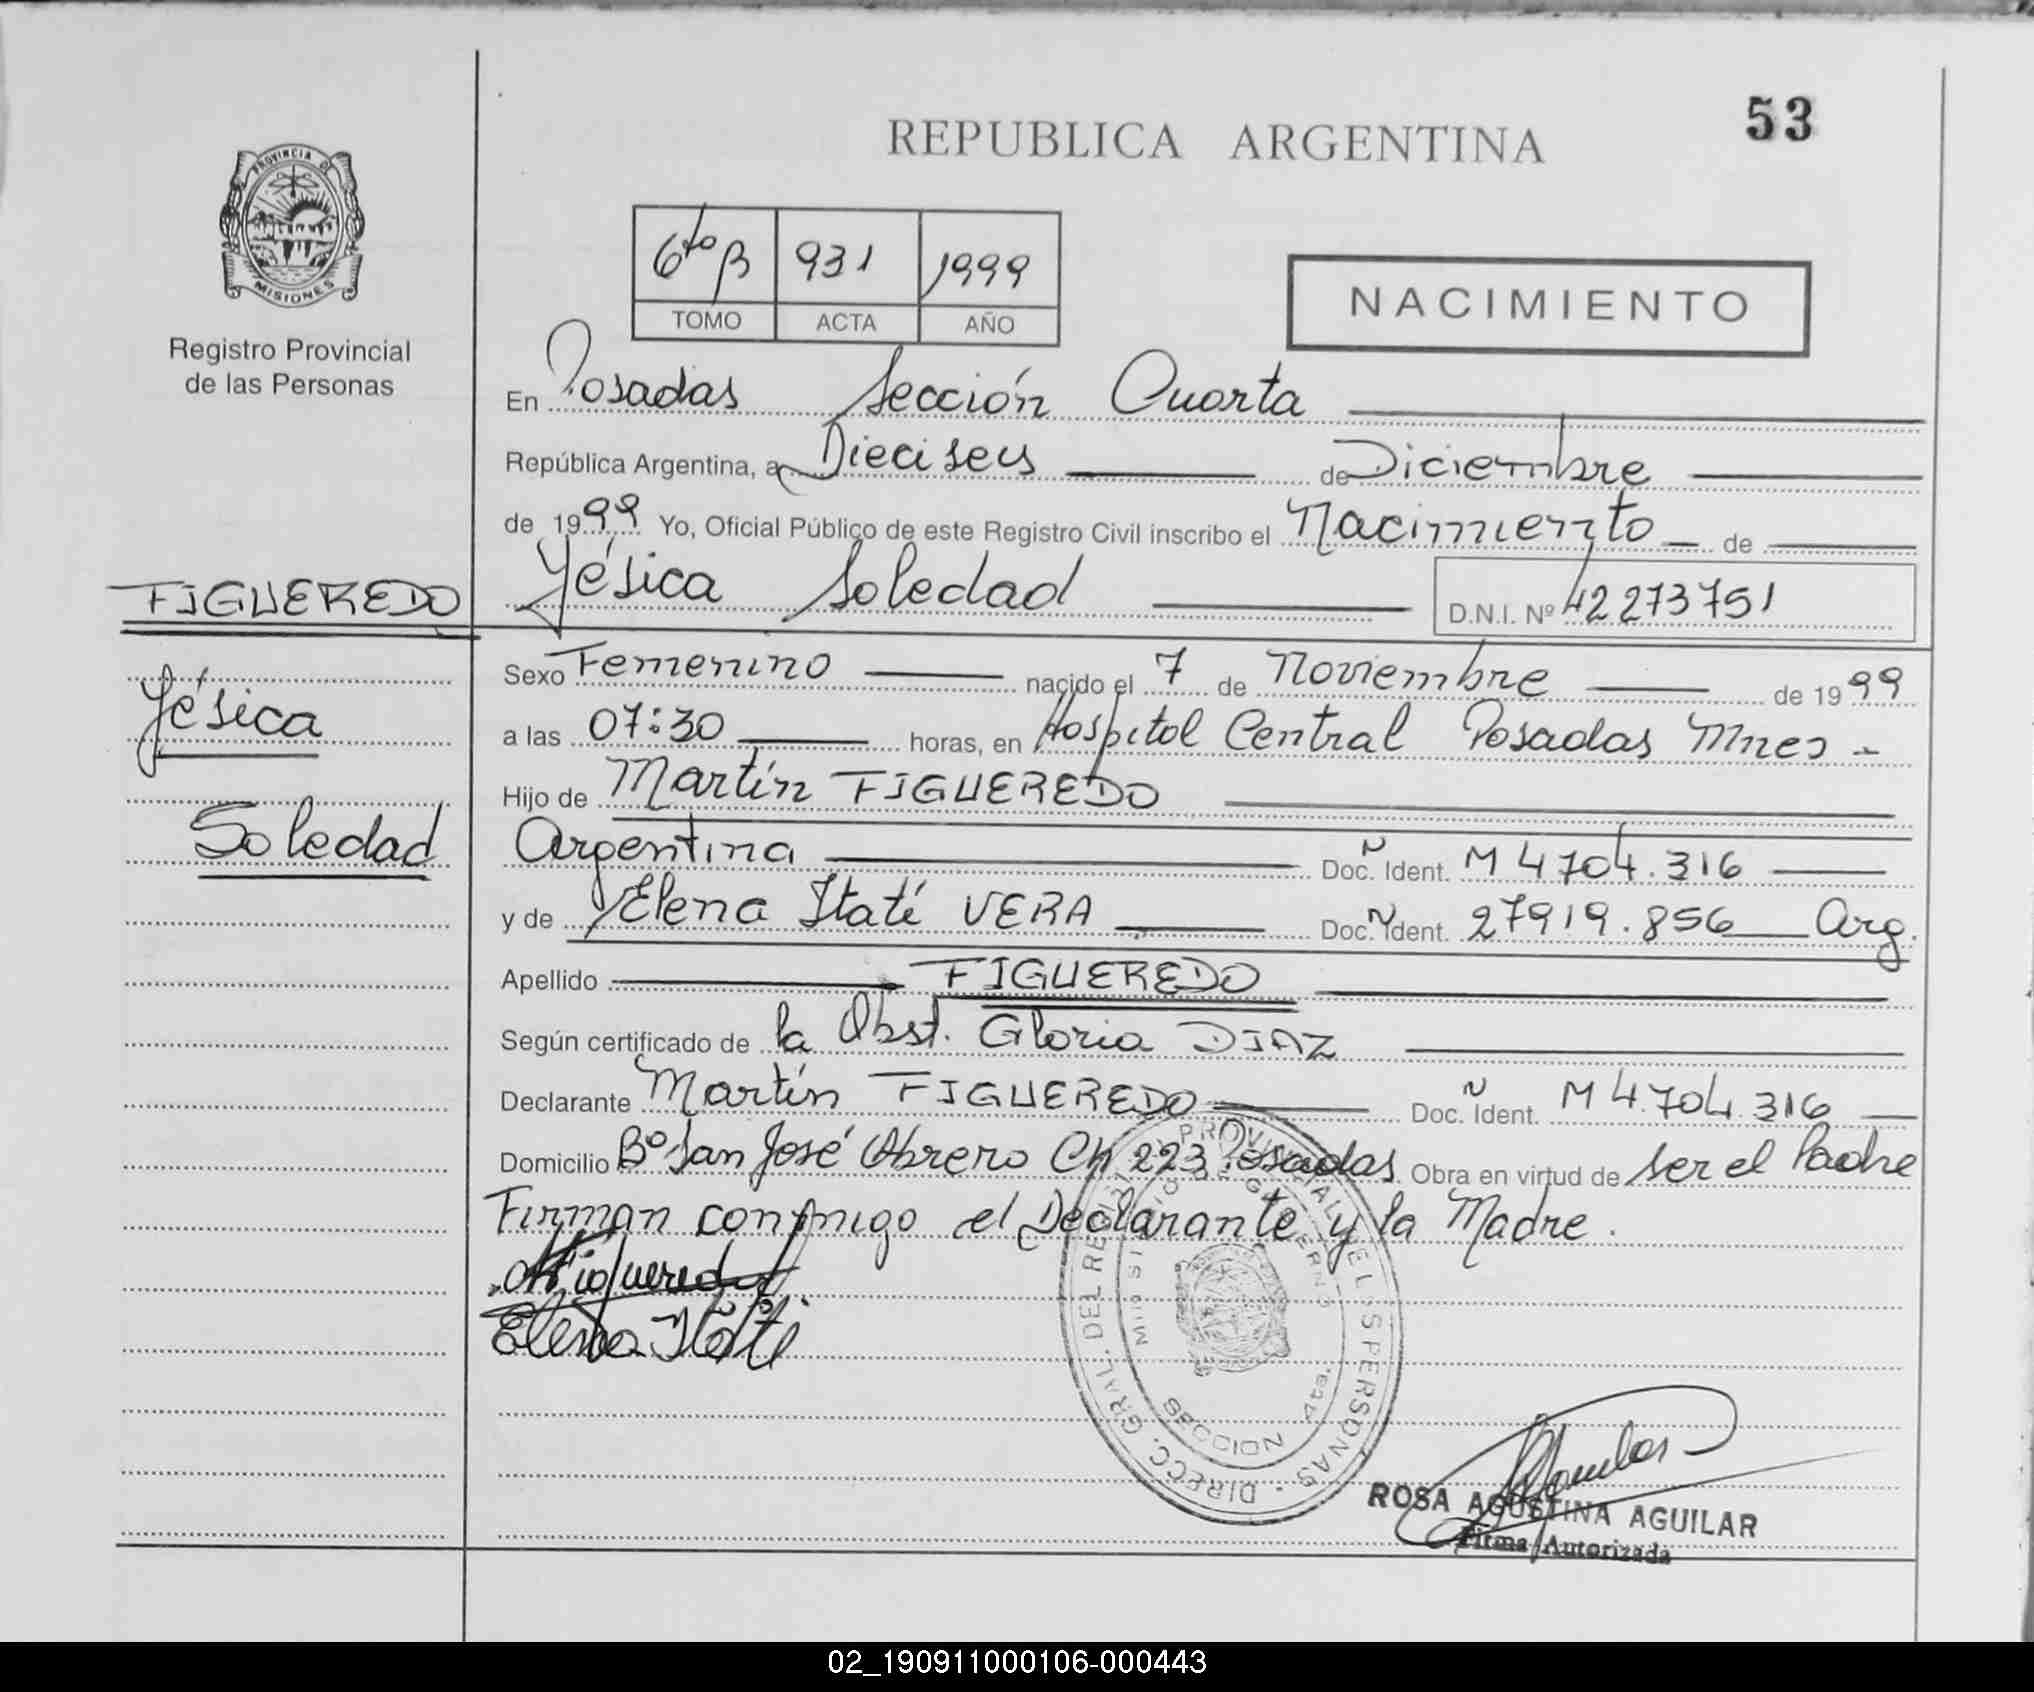 53
REPUBLICA ARGENTINA
PROVINCIA DE
MISIONES
Registro Provincial
de las Personas
6to B 931 1999
TOMO ACTA AÑO
NACIMIENTO
En Posadas Sección Cuarta
República Argentina, a Dieciseis de Diciembre
de 1999 Yo, Oficial Público de este Registro Civil inscribo el Nacimiento de
FIGUEREDO
Yésica Soledad D.N.I. Nº 42273751
Yésica
Soledad
Sexo Femenino nacido el 7 de Noviembre de 1999
a las 07:30 horas, en Hospital Central Posadas Mnes -
Hijo de Martín FIGUEREDO
Argentina Doc. Ident. M 4704.316
y de Elena Itatí VERA Doc. Ident. 27919.856 Arg.
Apellido FIGUEREDO
Según certificado de la Obst. Gloria DIAZ
Declarante Martín FIGUEREDO Doc. Ident. M 4.704.316
Domicilio Bº San José Obrero Ch 223 Posadas Obra en virtud de ser el Padre
Firman conmigo el Declarante y la Madre.
Elena Itati
DIRECC. GRAL. DEL REG. PROVINCIAL DE LAS PERSONAS
SECCION 4ta.
ROSA AGUSTINA AGUILAR
Firma Autorizada
02_190911000106-000443